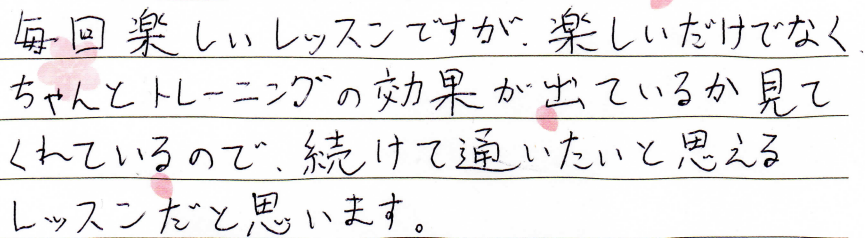 毎回楽しいレッスンですが、楽しいだけでなく、
ちゃんとトレーニングの効果が出ているか見て
くれているので、続けて通いたいと思える
レッスンだと思います。